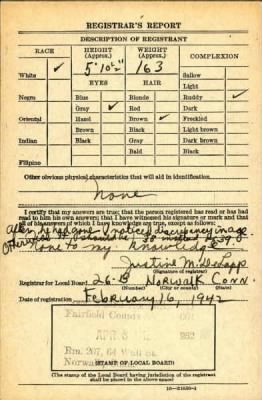 REGISTRAR'S REPORT
DESCRIPTION OF REGISTRANT
RACE HEIGHT (Approx.) WEIGHT (Approx.) COMPLEXION
White ✓ 5' 10½" 163 Sallow
EYES HAIR Light
Negro Blue Blonde Ruddy ✓
Gray ✓ Red Dark
Oriental Hazel Brown ✓ Freckled
Brown Black Light brown
Indian Black Gray Dark brown
Bald Black
Filipino
Other obvious physical characteristics that will aid in identification
None
I certify that my answers are true; that the person registered has read or has had
read to him his own answers; that I have witnessed his signature or mark and that
all of his answers of which I have knowledge are true, except as follows:
After he had gone I noticed discrepancy in age
Otherwise instead of 39.
to my knowledge
Justine M.
(Signature of registrar)
Registrar for Local Board 26-B Norwalk Conn.
(Number) (City or county) (State)
Date of registration February 16, 1942
Fairfield County
APR 8
Rm. 207, 64 Wall
Norwalk
(STAMP OF LOCAL BOARD)
(The stamp of the Local Board having jurisdiction of the registrant
shall be placed in the above space)